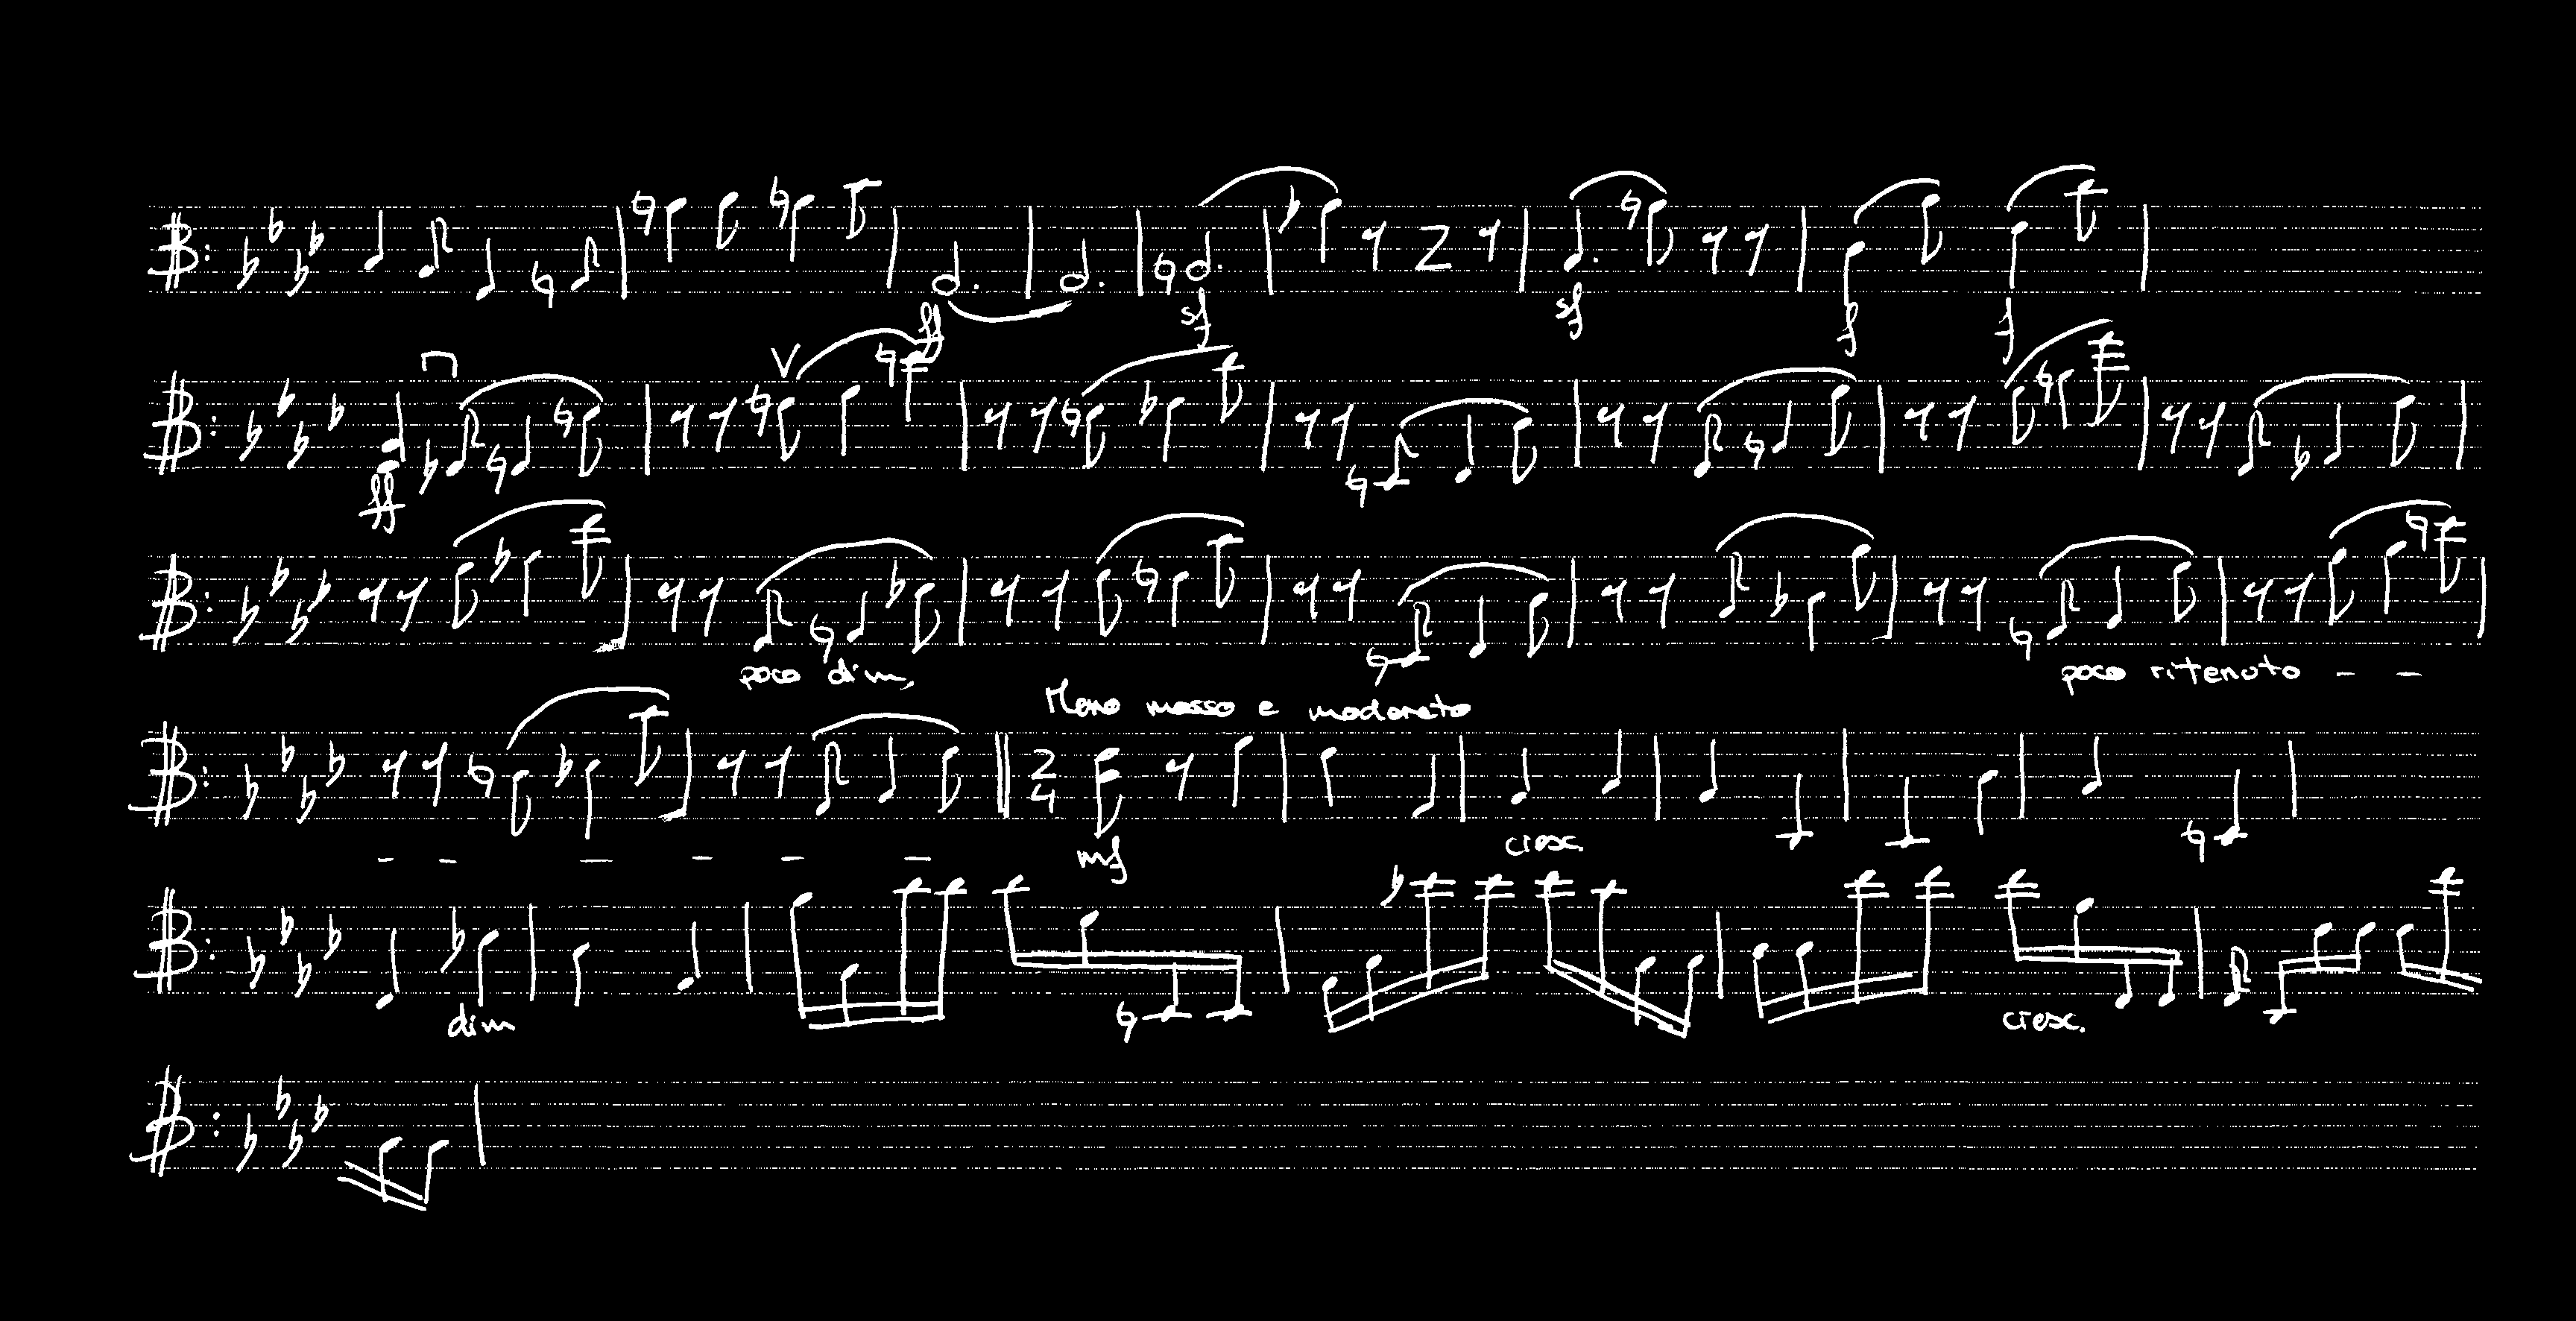 ff sf sf f f
V
ff
poco dim, poco ritenuto - -
Meno mosso e moderato
2/4
- - - - - - mf cresc.
dim cresc.